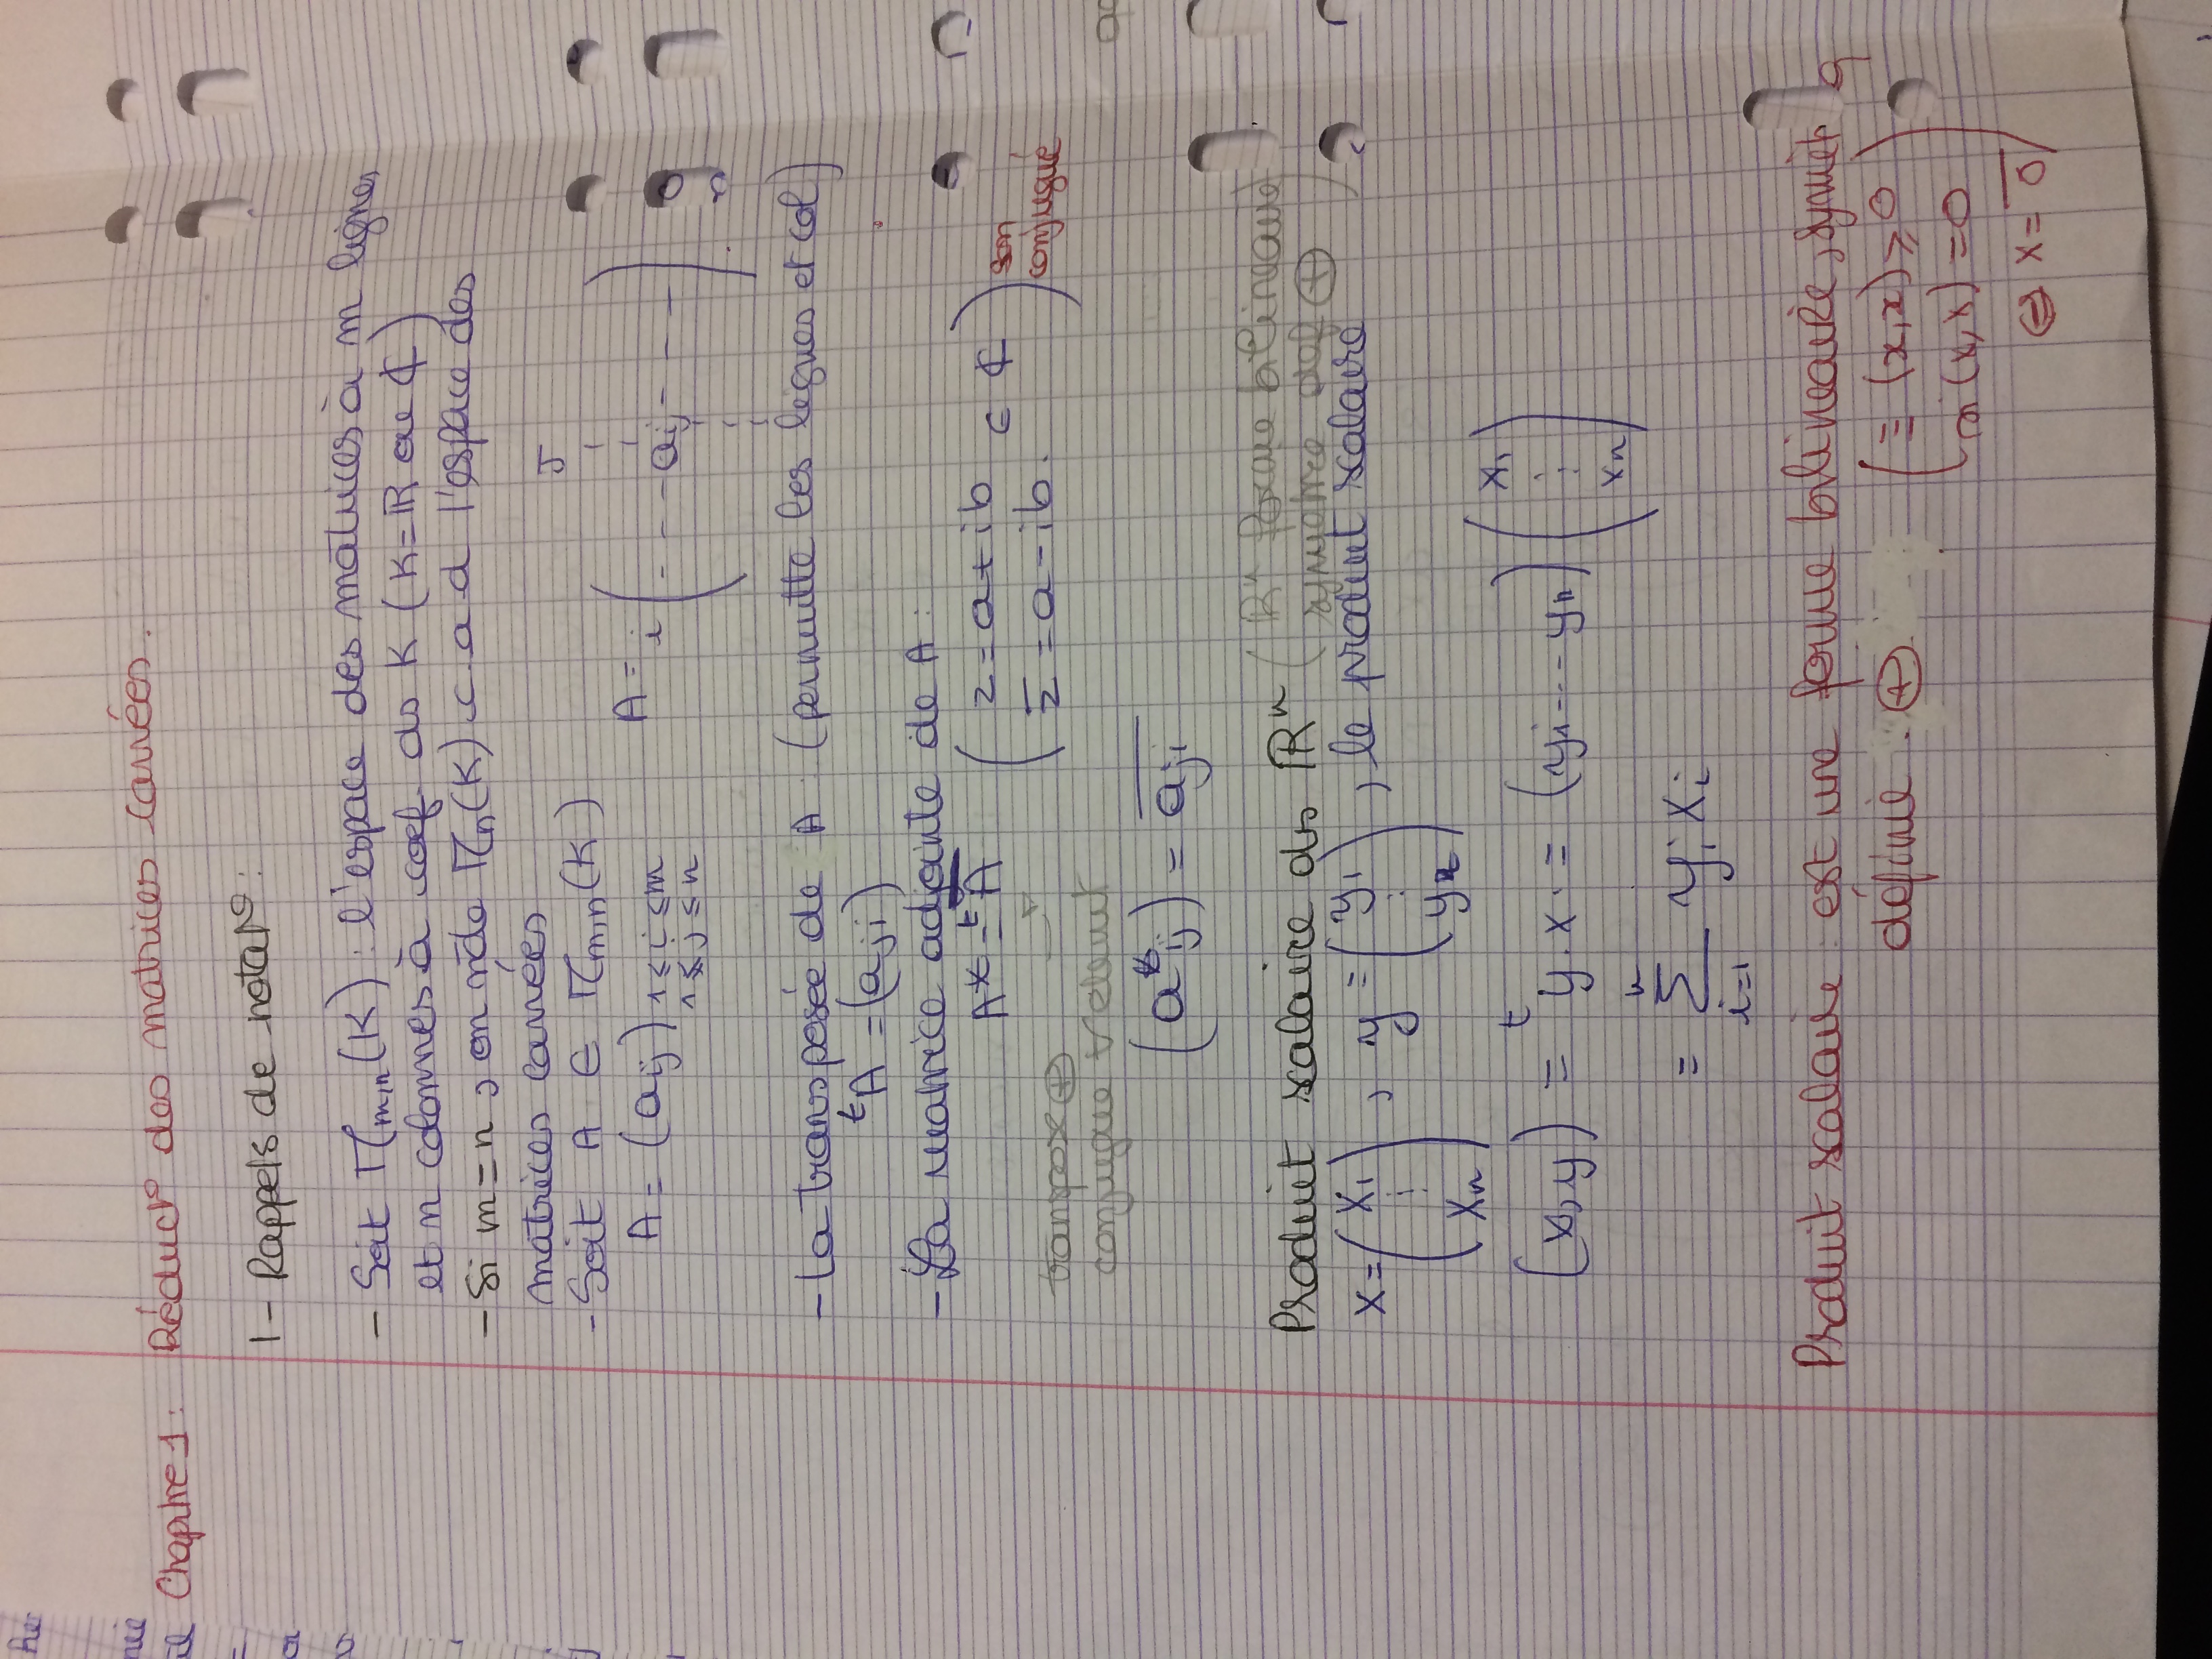 Chapitre 1 : Réduct° des matrices carrées.
1 - Rappels de notat° :
- Soit M_{m,n}(K) : l'espace des matrices à m lignes
et n colonnes à coef. ds K (K = ℝ ou ℂ)
- Si m = n, on note M_n(K) c a d l'espace des
matrices carrées
- Soit A ∈ M_{m,n}(K)
A = (a_{ij}) 1 ≤ i ≤ m
1 ≤ j ≤ n
J
A = i ( - - - a_{ij} - - - )
- La transposée de A : (permutte les lignes et col)
^tA = (a_{ji})
- La matrice adjointe de A :
A* = ^t\overline{A}
( z = a + ib ∈ ℂ
\overline{z} = a - ib. ) son
conjugué
transpose ⊕
conjugue
(a*_{ij}) = \overline{a_{ji}}
Produit scalaire ds ℝ^n (ℝ^n forme bilineaire
symetrie def ⊕)
x = (x_1 ⋮ x_n), y = (y_1 ⋮ y_n), le produit scalaire
(x, y) = ^ty . x . = (y_1 --- y_n) (x_1 ⋮ x_n)
= ∑_{i=1}^{n} y_i x_i
Produit scalaire : est une forme bilineaire, symét q
définie . ⊕
( ≡ (x, x) ≥ 0
si (x, x) = 0
⇔ x = \overline{0} )